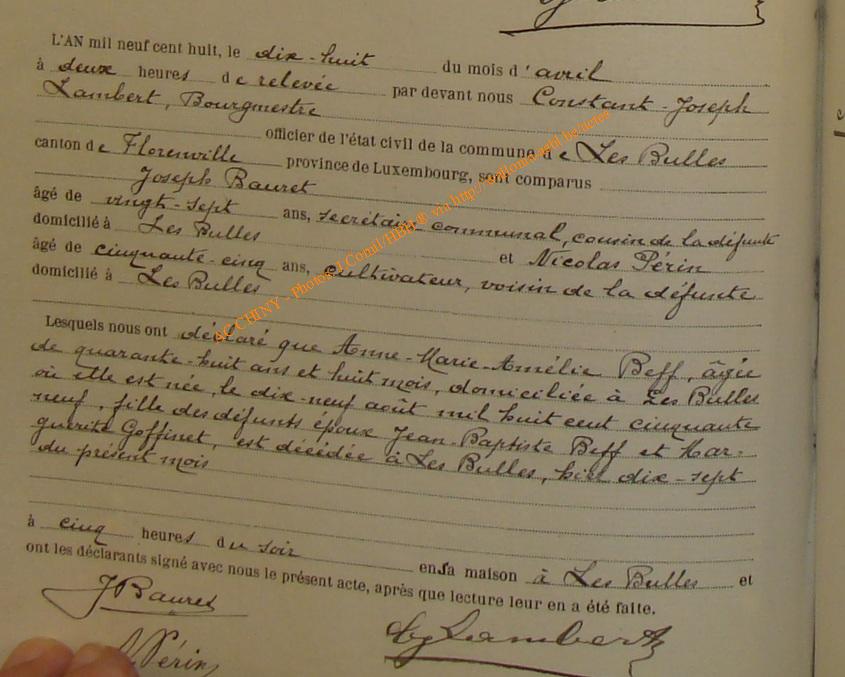 L'AN mil neuf cent huit, le dix-huit du mois d'avril
à deux heures de relevée par devant nous Constant-Joseph
Lambert, Bourgmestre
officier de l'état civil de la commune de Les Bulles
canton de Florenville province de Luxembourg, sont comparus
Joseph Bauret
âgé de vingt-sept ans, secrétaire communal, cousin de la défunte
domicilié à Les Bulles et Nicolas Périn
âgé de cinquante-cinq ans, cultivateur, voisin de la défunte
domicilié à Les Bulles
Lesquels nous ont déclaré que Anne-Marie-Amélie Beff, âgée
de quarante-huit ans et huit mois, domiciliée à Les Bulles
où elle est née, le dix-neuf août mil huit cent cinquante
neuf, fille des défunts époux Jean-Baptiste Beff et Mar-
guerite Goffinet, est décédée à Les Bulles, hier dix-sept
du présent mois
à cinq heures du soir en sa maison à Les Bulles et
ont les déclarants signé avec nous le présent acte, après que lecture leur en a été faite.
J Bauret
Périn
Lambert
AC CHINY - Photos J.Comil/HBH® via http://palloma-asbl.be/actes